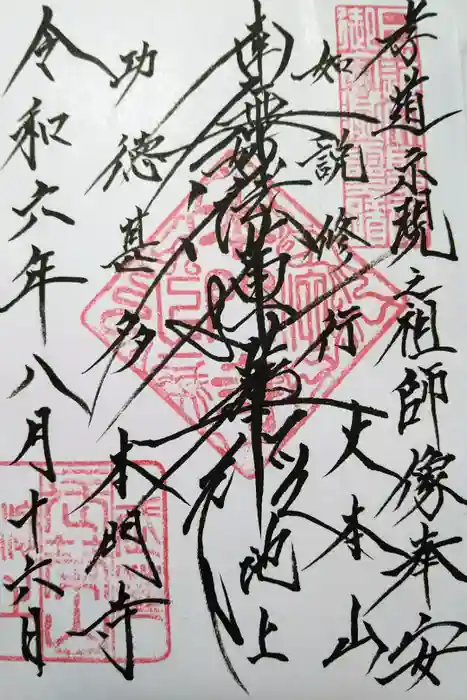 孝道示現之祖師像奉安
如説修行 大本山
南無妙法蓮華経
池上
功徳甚多 本門寺
令和六年八月十六日